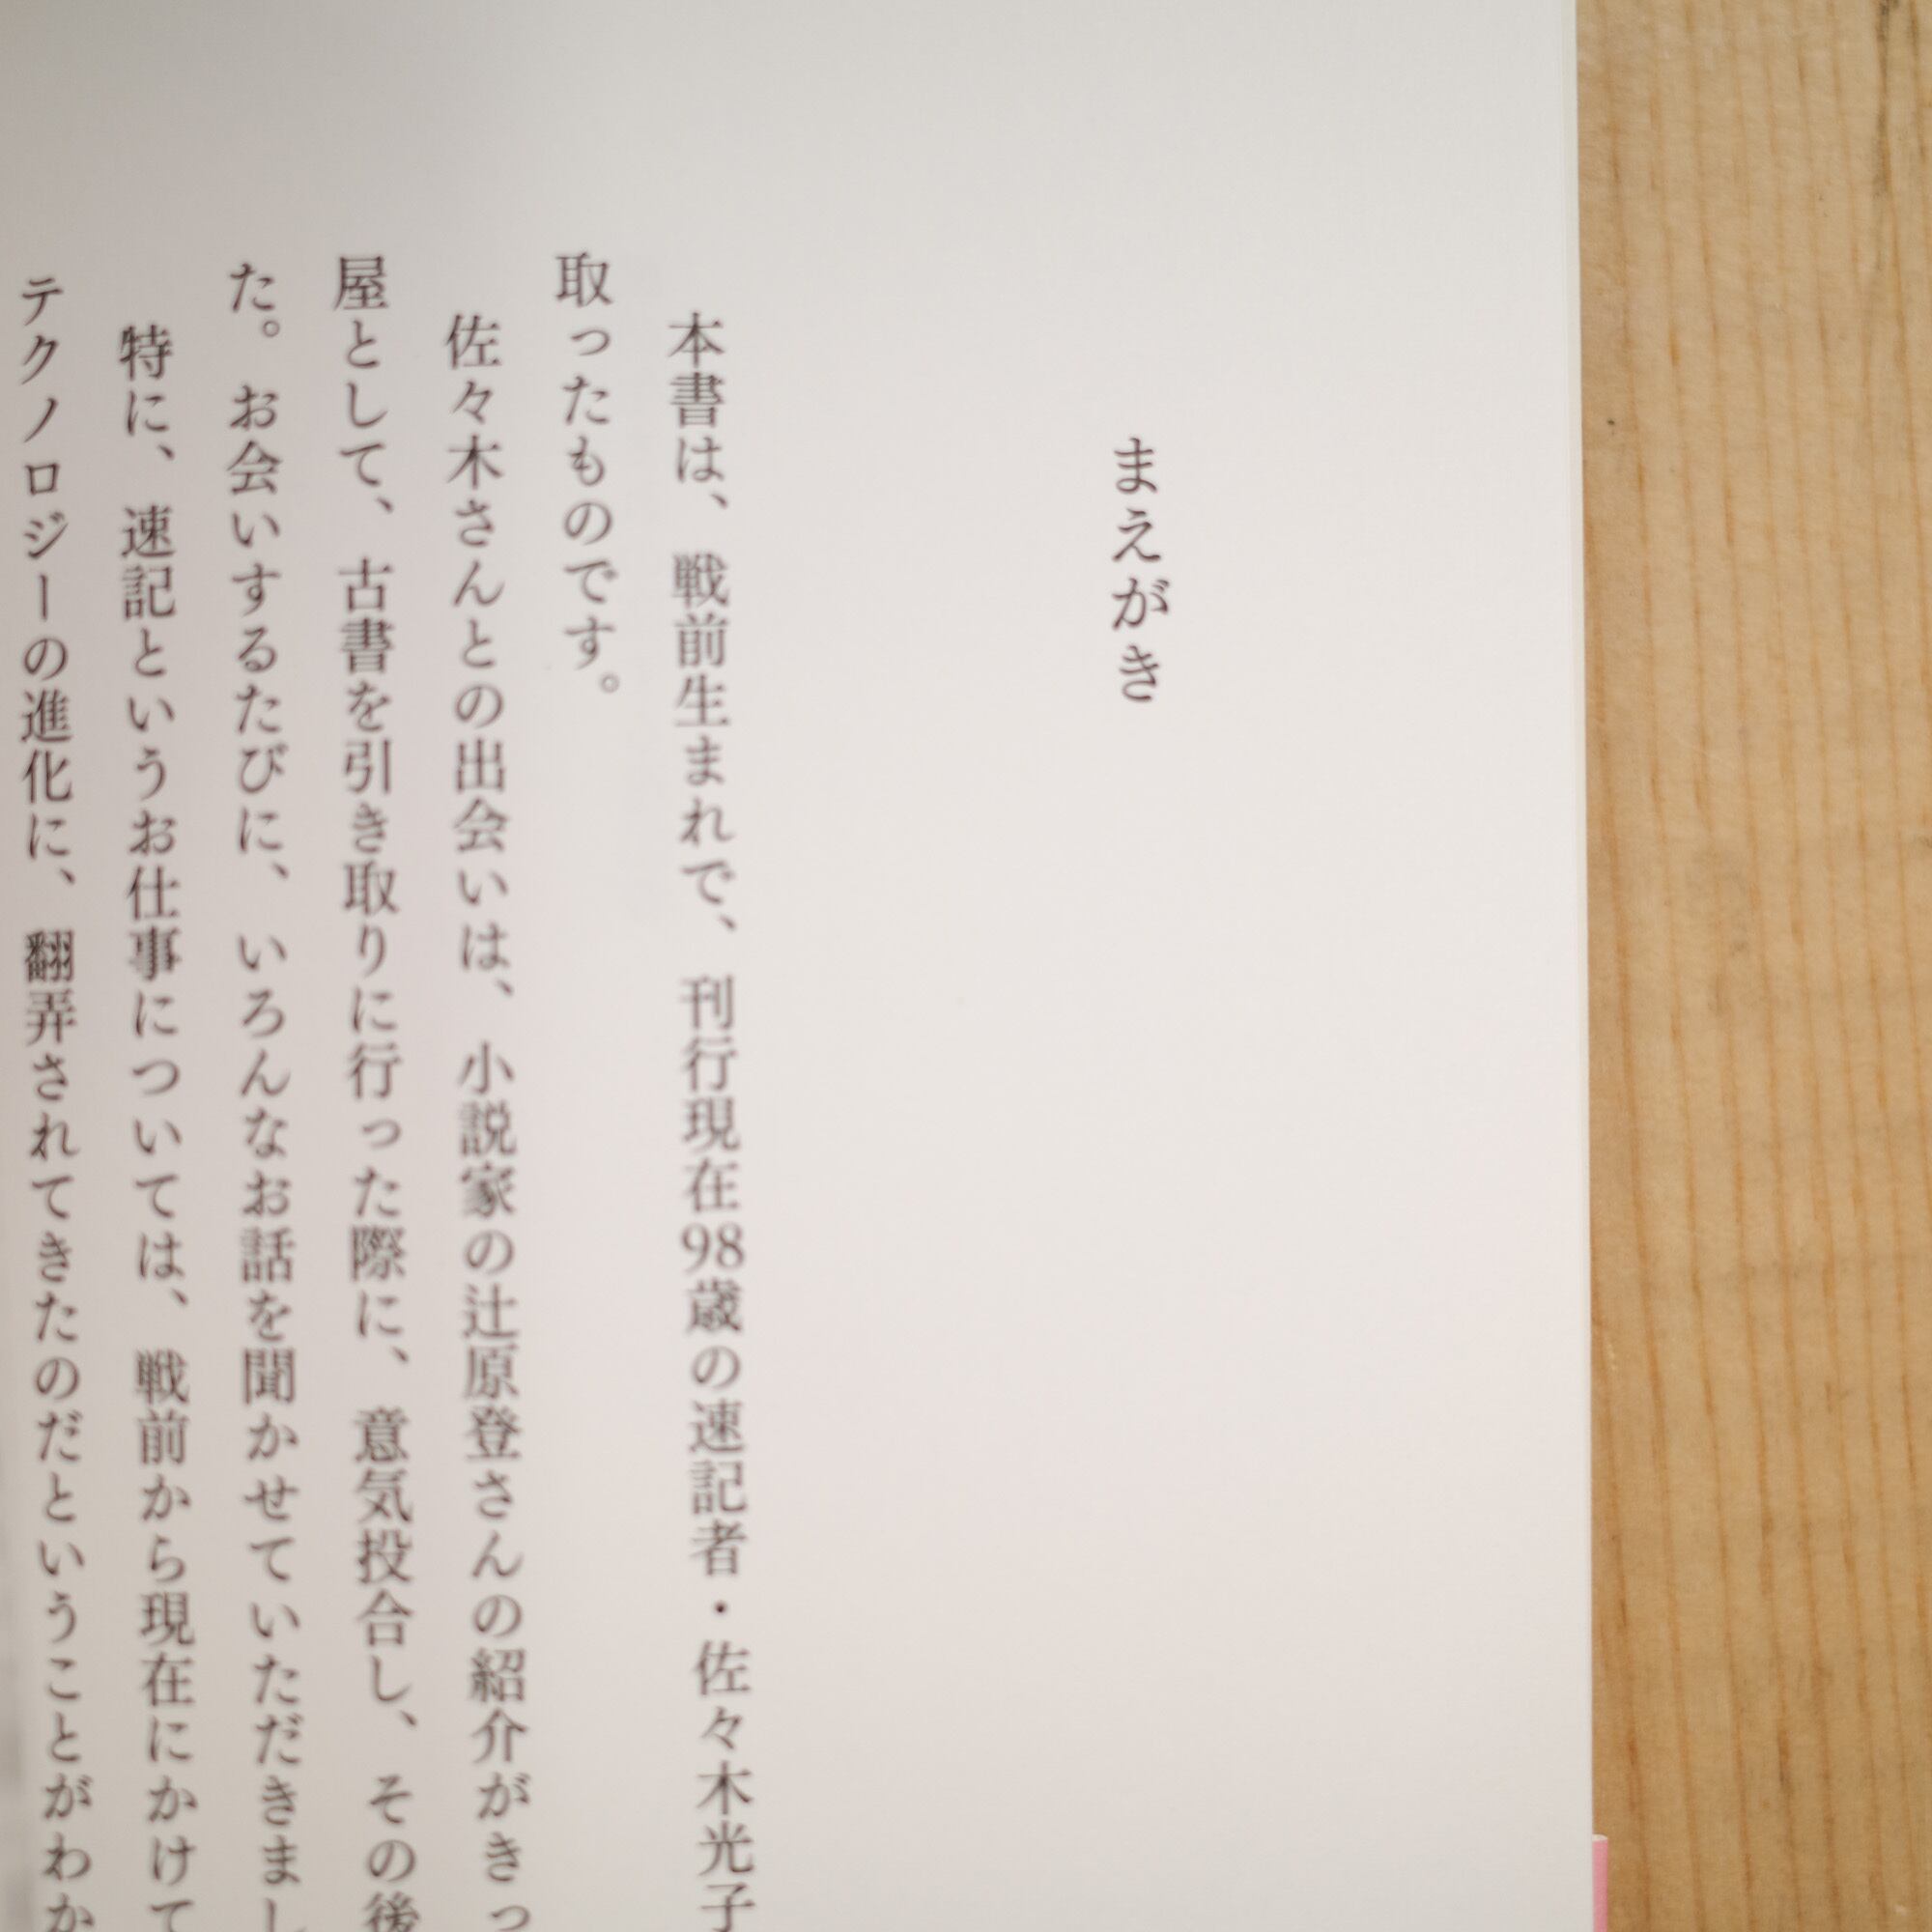 まえがき
本書は、戦前生まれで、刊行現在98歳の速記者・佐々木光子
取ったものです。
佐々木さんとの出会いは、小説家の辻原登さんの紹介がきっ
屋として、古書を引き取りに行った際に、意気投合し、その後
た。お会いするたびに、いろんなお話を聞かせていただきまし
特に、速記というお仕事については、戦前から現在にかけて
テクノロジーの進化に、翻弄されてきたのだということがわか